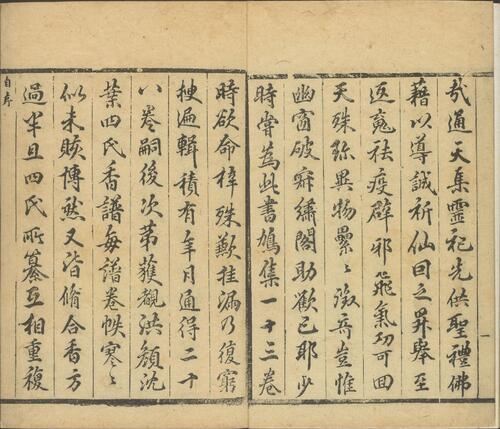 哉通天集靈祀先供聖禮佛
藉以導誠祈仙因之昇舉至
返魂祛疫辟邪飛氣功可回
天殊珍異物纍々徵奇豈惟
幽窗破寂繡閣助歡已耶少
時嘗為此書鳩集一十三卷
時欲命梓殊歉挂漏乃復窮
搜遍輯積有年月通得二十
八卷嗣後次第獲覯洪顏沈
葉四氏香譜每譜卷帙寥々
似未賅博然又皆脩合香方
過半且四氏所纂互相重複
自序